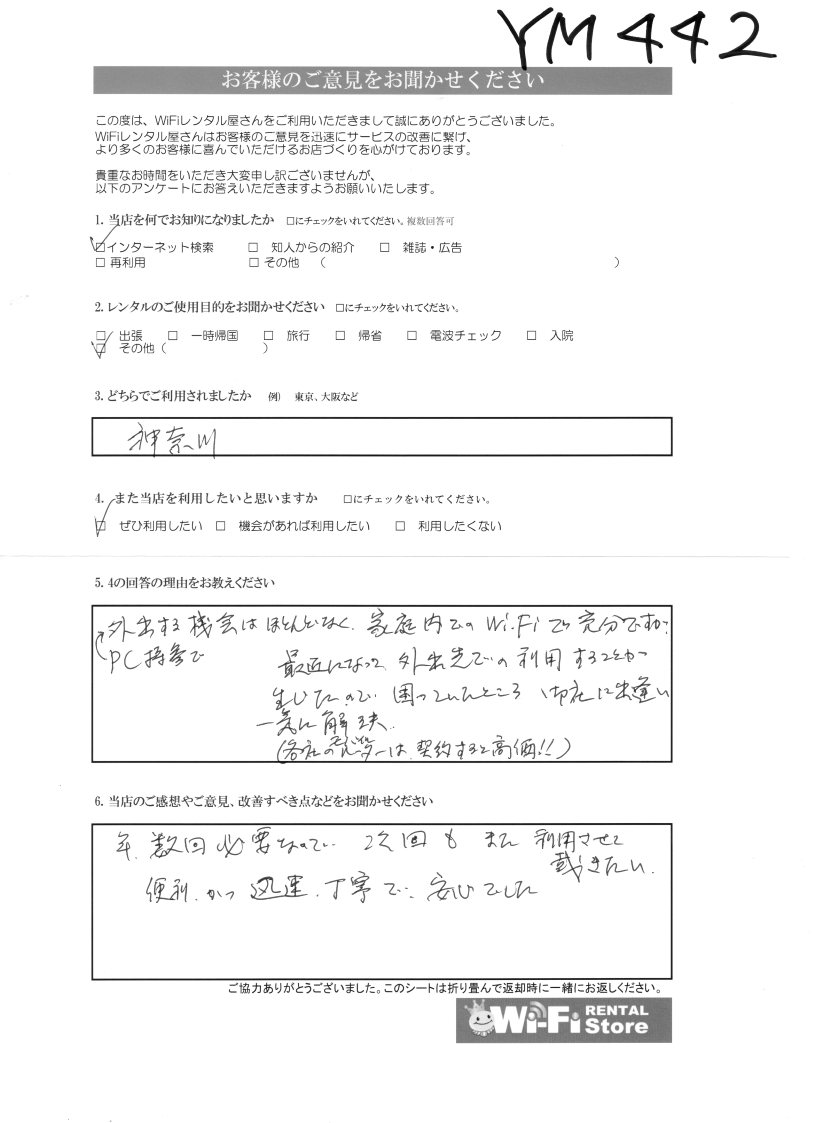 YM442
お客様のご意見をお聞かせください
この度は、WiFiレンタル屋さんをご利用いただきまして誠にありがとうございました。
WiFiレンタル屋さんはお客様のご意見を迅速にサービスの改善に繋げ、
より多くのお客様に喜んでいただけるお店づくりを心がけております。
貴重なお時間をいただき大変申し訳ございませんが、
以下のアンケートにお答えいただきますようお願いいたします。
1. 当店を何でお知りになりましたか □にチェックをいれてください。複数回答可
☑インターネット検索 □ 知人からの紹介 □ 雑誌・広告
□ 再利用 □ その他 ( )
2. レンタルのご使用目的をお聞かせください □にチェックをいれてください。
□ 出張 □ 一時帰国 □ 旅行 □ 帰省 □ 電波チェック □ 入院
☑ その他 ( )
3. どちらでご利用されましたか 例) 東京、大阪など
神奈川
4. また当店を利用したいと思いますか □にチェックをいれてください。
☑ ぜひ利用したい □ 機会があれば利用したい □ 利用したくない
5. 4の回答の理由をお教えください
外出する機会はほとんどなく、家庭内でのWi-Fiで充分ですが
PC持参で
最近になって外出先での利用することが
生じたので困っていたところ 御社に出逢い
一気に解決
(各社の は、契約すると高価!!)
6. 当店のご感想やご意見、改善すべき点などをお聞かせください
年、数回必要なので 次回も また 利用させて
戴きたい。
便利、かつ 迅速、丁寧で、安心でした
ご協力ありがとうございました。このシートは折り畳んで返却時に一緒にお返しください。
Wi-Fi RENTAL Store